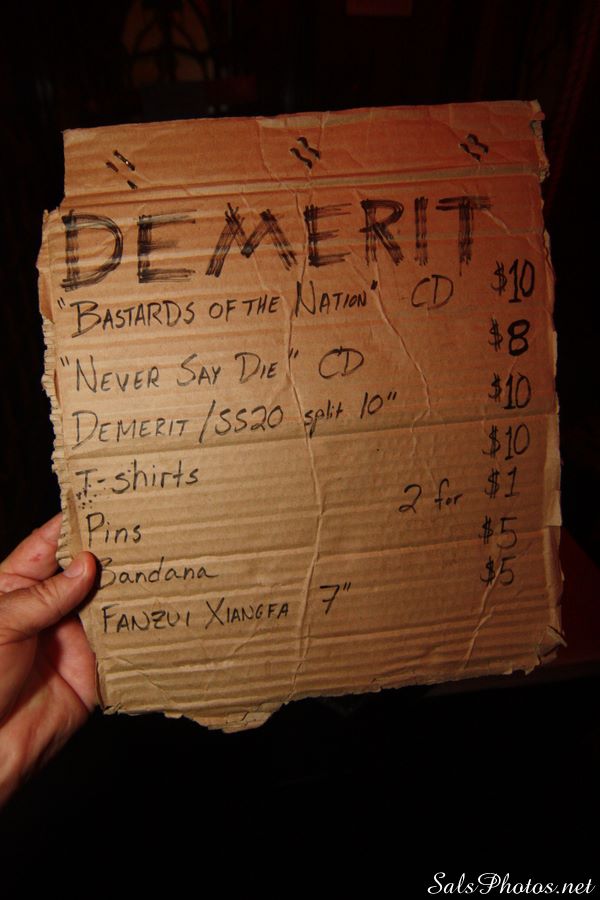 DEMERIT
"BASTARDS OF THE NATION" CD $10
"NEVER SAY DIE" CD $8
DEMERIT/SS20 split 10" $10
T-shirts $10
Pins 2 for $1
Bandana $5
FANZUI XIANGFA 7" $5
SalsPhotos.net